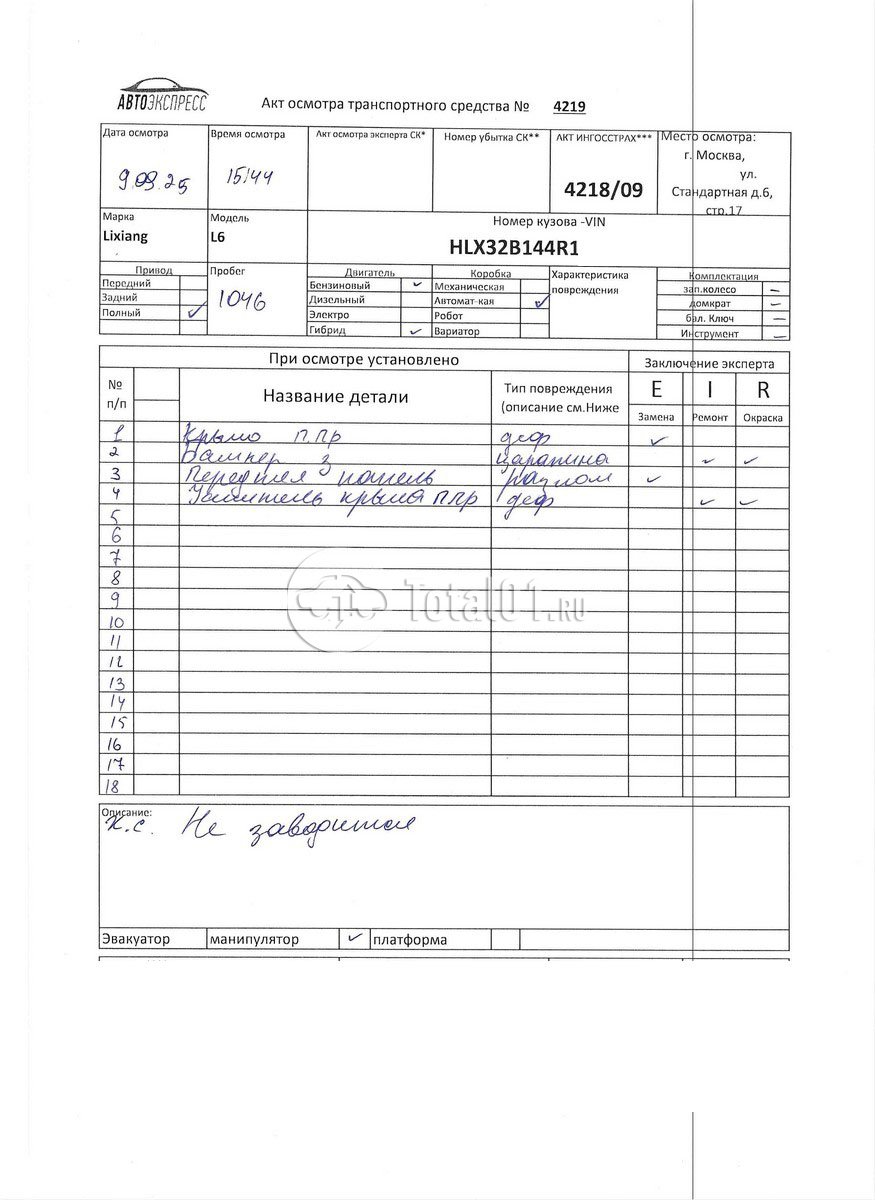 АВТОЭКСПРЕСС
Акт осмотра транспортного средства № 4219
Дата осмотра
9.09.25
Время осмотра
15:44
Акт осмотра эксперта СК*
Номер убытка СК**
АКТ ИНГОССТРАХ***
4218/09
Место осмотра:
г. Москва,
ул.
Стандартная д.6,
стр.17
Марка
Lixiang
Модель
L6
Номер кузова -VIN
HLX32B144R1
Привод
Передний
Задний
Полный ✓
Пробег
1046
Двигатель
Бензиновый ✓
Дизельный
Электро
Гибрид ✓
Коробка
Механическая
Автомат-кая ✓
Робот
Вариатор
Характеристика
повреждения
Комплектация
зап.колесо –
домкрат –
бал. Ключ –
Инструмент –
При осмотре установлено
Заключение эксперта
№
п/п
Название детали
Тип повреждения
(описание см.Ниже
E I R
Замена Ремонт Окраска
1 Крыло п.пр деф ✓
2 Бампер з царапина ✓ ✓
3 Передняя панель разлом ✓
4 Усилитель крыла ппр деф ✓ ✓
5
6
7
8
9
10
11
12
13
14
15
16
17
18
Total01.RU
Описание:
К.с. Не заводится
Эвакуатор манипулятор ✓ платформа